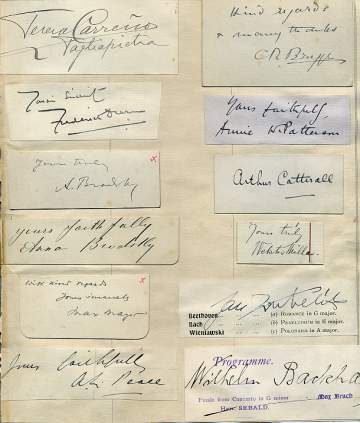 Teresa Carreño
Tagliapietra
Yours sincerely
Frederic
Yours truly
A. Brodsky
Yours faithfully
Anna Brodsky
With kind regards
Yours sincerely
Max Mayer
Yours faithfully
A. L. Peace
Kind regards
& many thanks
Yours faithfully,
Annie W. Patterson
Arthur Catterall
Yours truly
Webster Millar
Jan Kubelik
Beethoven ... (a) ROMANCE in G major.
Bach ... (b) PRAELUDIUM in E major.
Wieniawski ... (c) POLONAISE in A major.
Programme.
Wilhelm Backha
Finale from Concerto in G minor Max Bruch
Herr SEBALD.